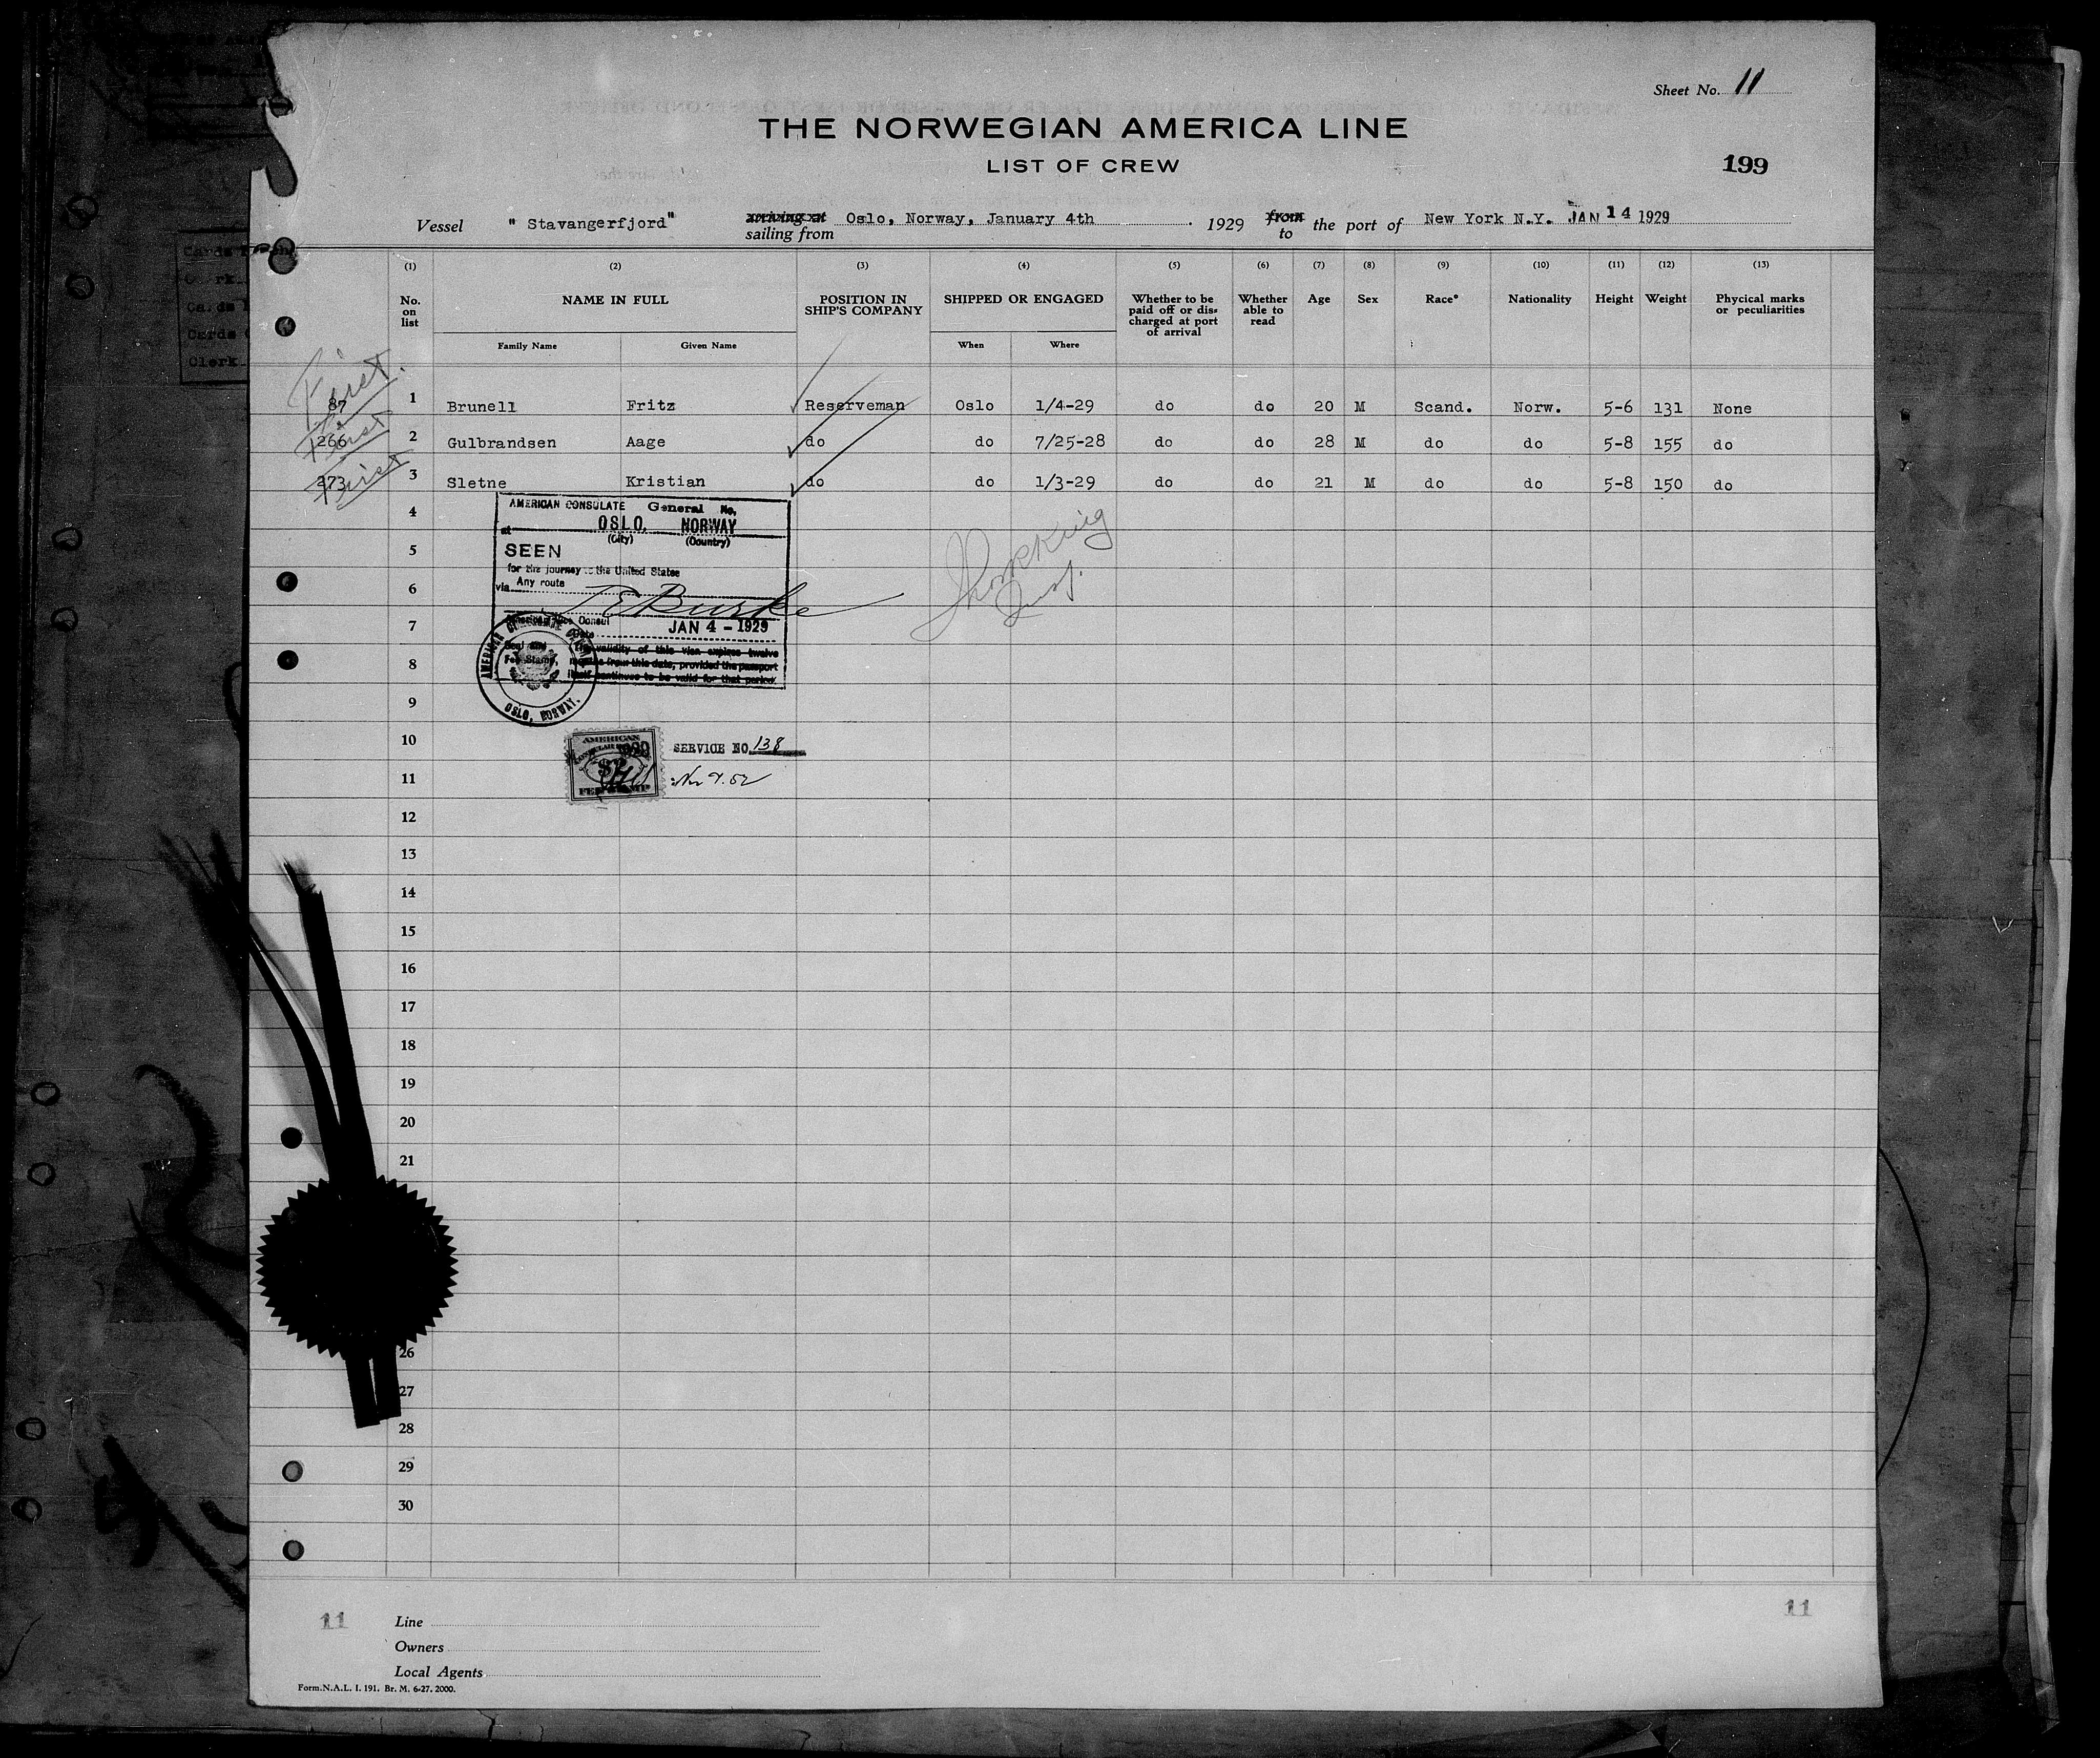 Sheet No. 11
THE NORWEGIAN AMERICA LINE
LIST OF CREW
199
Vessel " Stavangerfjord" arriving at sailing from Oslo, Norway, January 4th 1929 from to the port of New York N.Y. JAN 14 1929
(1) (2) (3) (4) (5) (6) (7) (8) (9) (10) (11) (12) (13)
No. on list NAME IN FULL POSITION IN SHIP'S COMPANY SHIPPED OR ENGAGED Whether to be paid off or discharged at port of arrival Whether able to read Age Sex Race* Nationality Height Weight Physical marks or peculiarities
Family Name Given Name When Where
First.
87 1 Brunell Fritz Reserveman Oslo 1/4-29 do do 20 M Scand. Norw. 5-6 131 None
First
266 2 Gulbrandsen Aage do do 7/25-28 do do 28 M do do 5-8 155 do
First
273 3 Sletne Kristian do do 1/3-29 do do 21 M do do 5-8 150 do
4
5
6
7
8
9
10
11
12
13
14
15
16
17
18
19
20
21
26
27
28
29
30
AMERICAN CONSULATE General No.
at OSLO, NORWAY
(City) (Country)
SEEN
for the journey to the United States
via Any route
Burke
Consul
Date JAN 4 - 1929
The validity of this visa expires twelve
months from this date, provided the passport
itself continues to be valid for that period.
Seal and
Fee Stamp,
AMERICAN CONSULATE GENERAL
OSLO, NORWAY.
AMERICAN
FEE STAMP
SERVICE NO. 138
11 11
Line
Owners
Local Agents
Form.N.A.L. I. 191. Br. M. 6-27. 2000.
Cards
Cards
Cards
Clerk